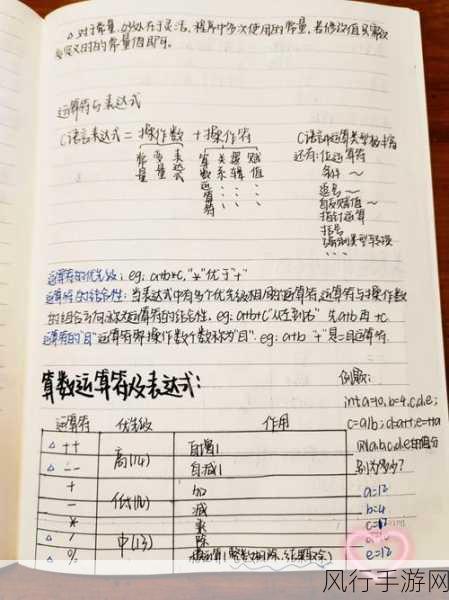 △ 对于常量,好处在于灵活,程序中多次使用的常量,若修改值只需改
定义时的常量值即可。
运算符与表达式
C语言表达式 = 操作数 + 操作符
常量 变量 表达式
算数运算符 关系 逻辑 赋值
C语言中运算类型的丰富
还有:位运算符
条件 ~
逗号 ~
自反赋值 ~
指针运算
括号
强制类型转换
运算符的优先级:eg: a+b*c, "*"优于"+"
运算符的结合性:当表达式中有多个优先级相同的运算符,运算符与操作数
的组合方向称为运算符的结合性. eg: a+b+c "从左到右" 先a+b 再 +c
运算符的"目" 运算符带操作数个数称为"目". eg: a+b "+"是二目运算符.
算数运算符及表达式:
运算符 优先级 作用
△ ++ 高(14) 自增1
△ -- 自减1
+ 低(12) 加
- 减
* 中(13) 乘
△ / 除
△ %
例题:
int a=10, b=4, c, d, e;
c=a/b; d=a++; e=++a
问a,b,c,d,e的值分
别为多少?
a=12
b=4
e=12
风行手游网